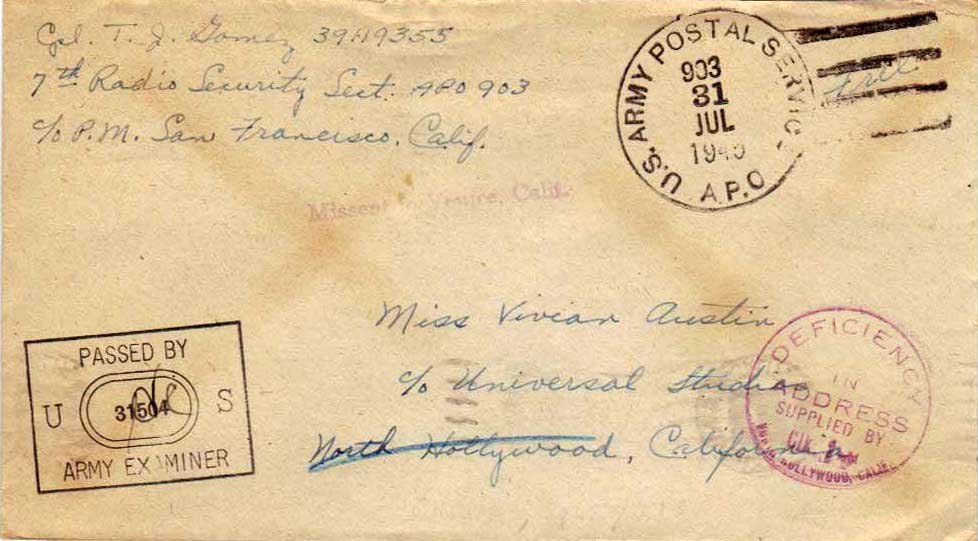 Cpl. T. J. Gomez 39119355
7th Radio Security Sect. APO 903
c/o P.M. San Francisco, Calif.
U.S. ARMY POSTAL SERVICE
903
31
JUL
A.P.O.
Free
Missent to Calif.
Miss Vivian Austin
c/o Universal Studios
North Hollywood, California
PASSED BY
U 31504 S
ARMY EXAMINER
DEFICIENCY
IN
ADDRESS
SUPPLIED BY
NORTH HOLLYWOOD, CALIF.